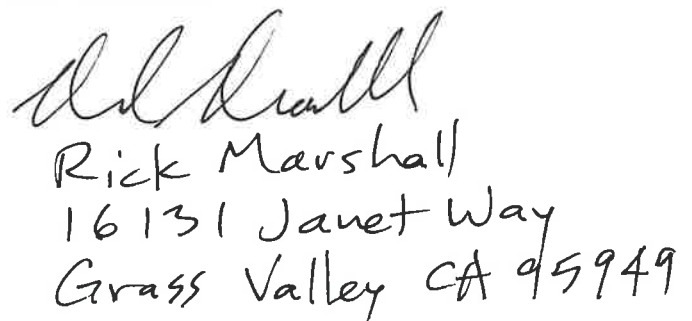 Rick Marshall
16131 Janet Way
Grass Valley CA 95949